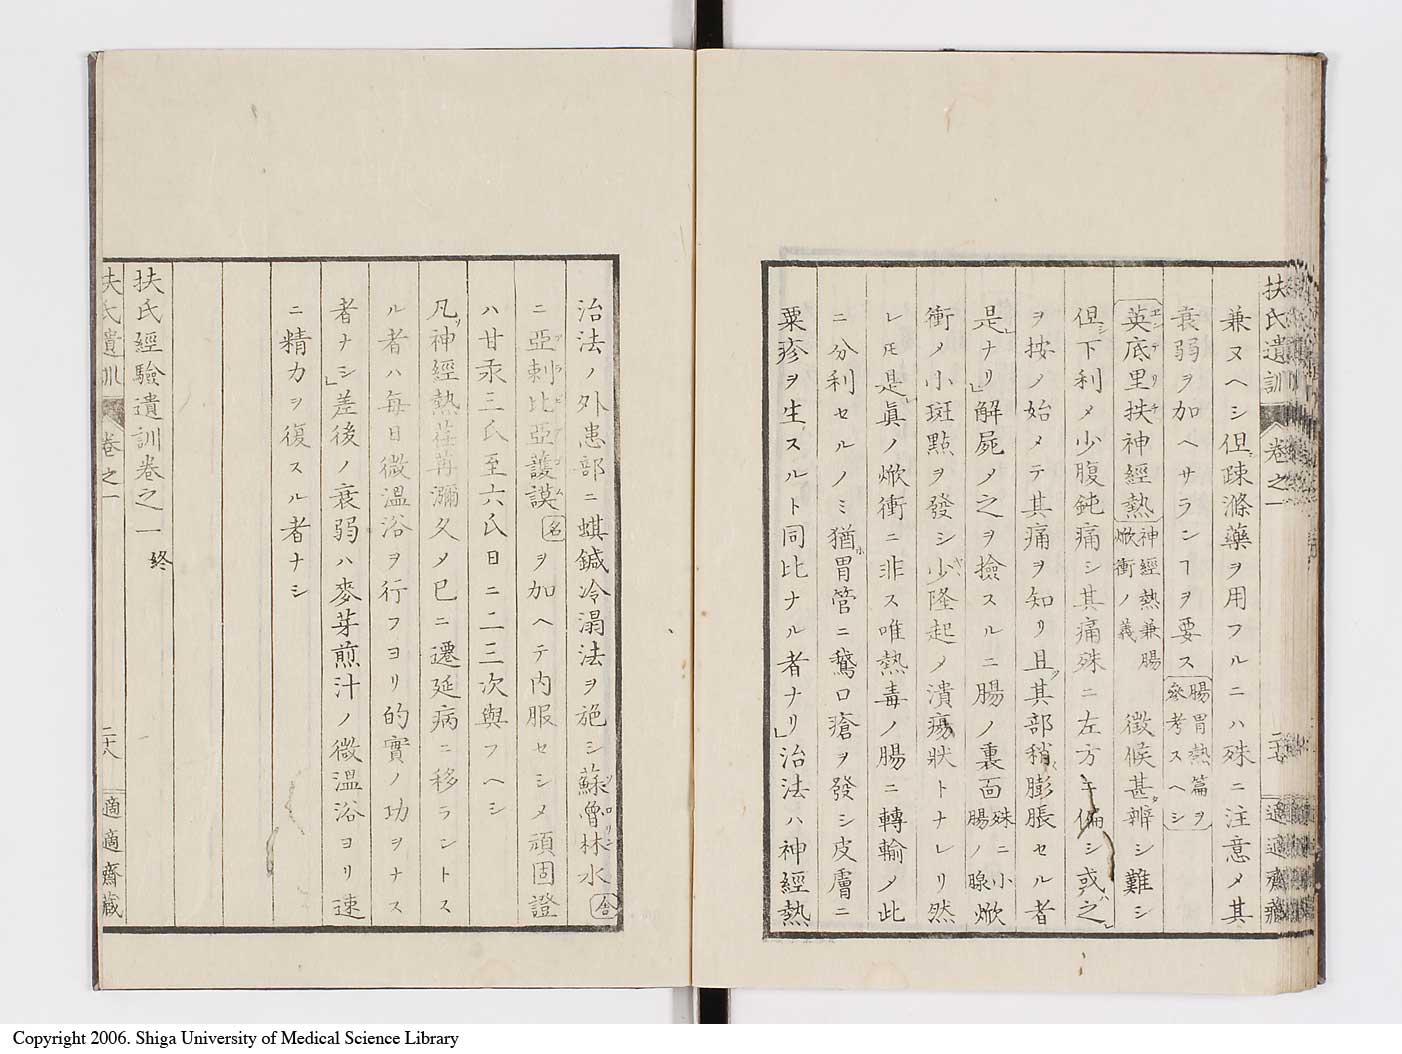 扶氏遺訓 卷之一 二十七 適適齋藏
兼ヌヘシ但疎滌藥ヲ用フルニハ殊ニ注意メ其
衰弱ヲ加ヘサランヿヲ要ス 腸胃熱篇ヲ參考スヘシ
英底里扶神經熱 神經熱兼腸焮衝ノ義 徴候甚タ辨シ難シ
但シ下利メ少腹鈍痛シ其痛殊ニ左方ニ偏シ或ハ之
ヲ按ノ始メテ其痛ヲ知リ且ツ其部稍膨脹セル者
是ナリ」解屍メ之ヲ撿スルニ腸ノ裏面 殊ニ小腸ノ腺 焮
衝ノ小斑點ヲ發シ少ク隆起ノ潰瘍狀トナレリ然
レ𪜈是レ眞ノ焮衝ニ非ス唯熱毒ノ腸ニ轉輸メ此
ニ分利セルノミ猶ホ胃管ニ鵞口瘡ヲ發シ皮膚ニ
粟疹ヲ生スルト同比ナル者ナリ」治法ハ神經熱
治法ノ外患部ニ蜞鍼冷溻法ヲ施シ蘇魯林水 舎
ニ亞剌比亞護謨 名 ヲ加ヘテ内服セシメ頑固證
ハ甘汞三氏至六氏日ニ二三次與フヘシ
凡ソ神經熱荏苒瀰久メ已ニ遷延病ニ移ラントス
ル者ハ毎日微溫浴ヲ行フヨリ的實ノ功ヲナス
者ナシ」差後ノ衰弱ハ麥芽煎汁ノ微溫浴ヨリ速
ニ精力ヲ復スル者ナシ
扶氏經驗遺訓卷之一 終
扶氏遺訓 卷之一 二十八 適適齋藏
Copyright 2006. Shiga University of Medical Science Library